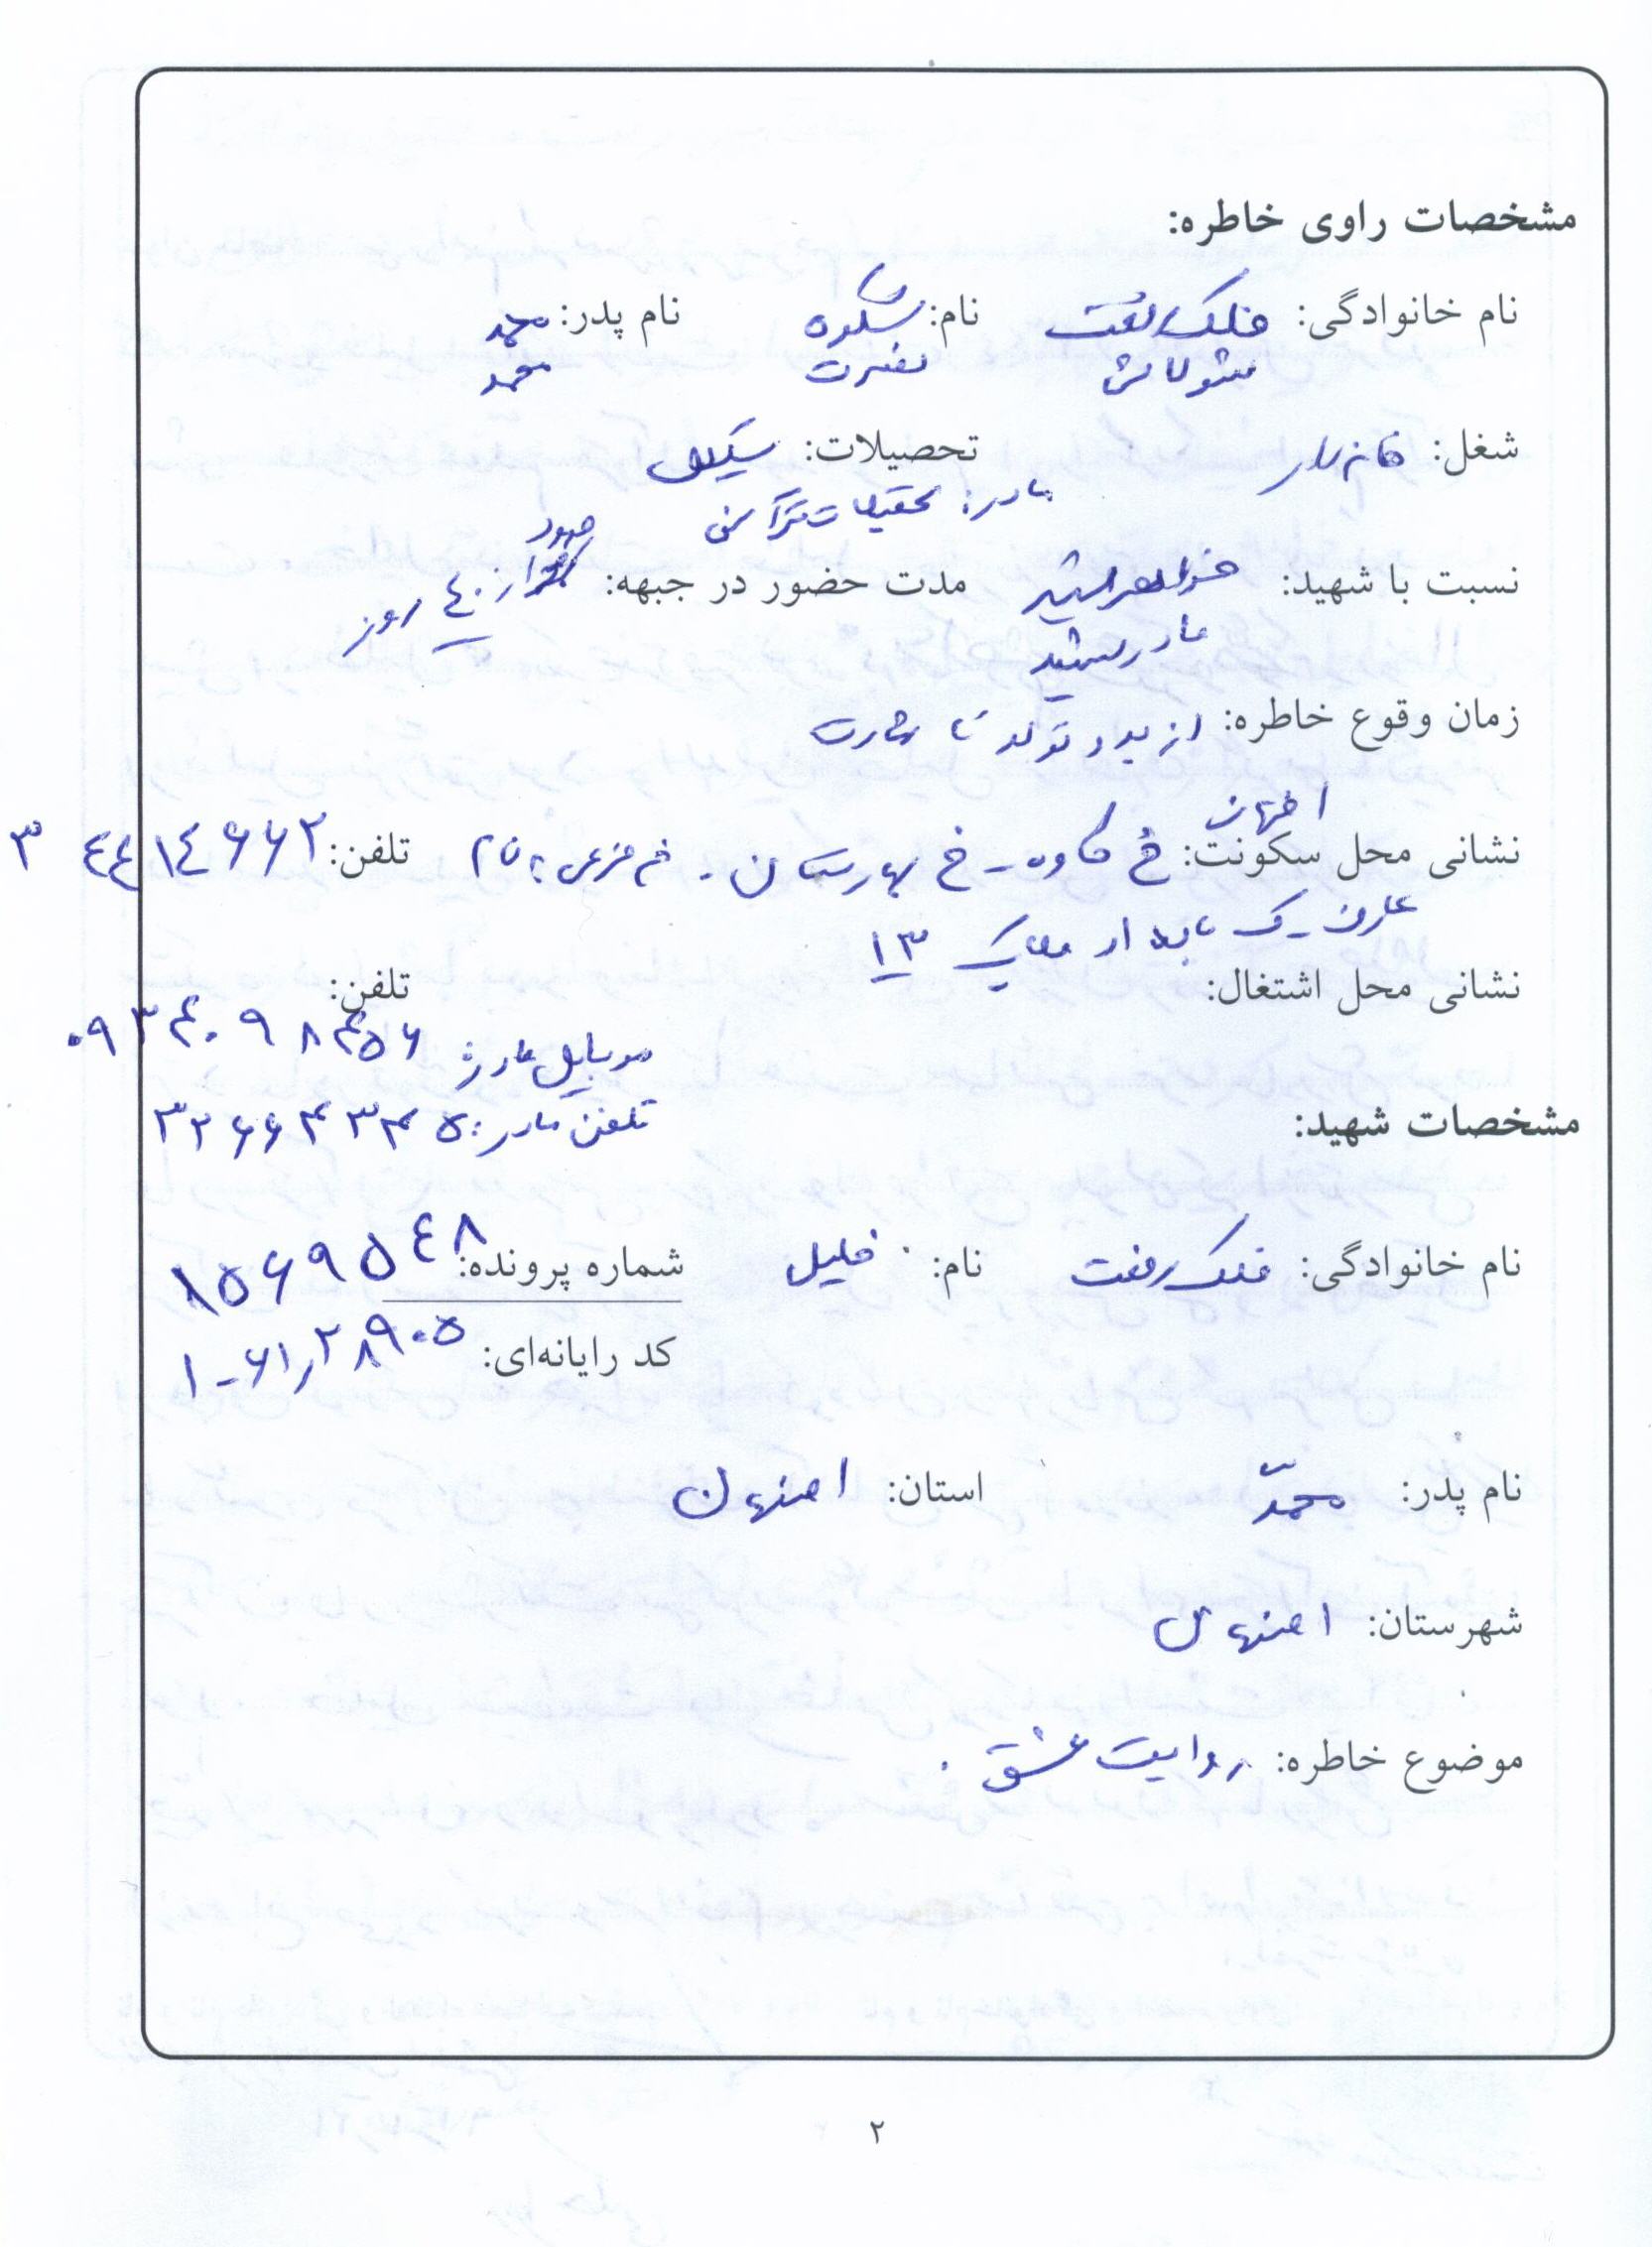 مشخصات راوی خاطره:
نام خانوادگی: فلک رفعت نام: شکوه نام پدر: محمد
نصرت محمد
شغل: خانه‌دار تحصیلات: سیکل
مادر: تحصیلات قرآنی
نسبت با شهید: خواهر شهید مدت حضور در جبهه: حدود ٤٠ روز
مادر شهید
زمان وقوع خاطره: از بدو تولد تا شهادت
اصفهان
نشانی محل سکونت: خ کاوه - خ بهارستان - خ فرعی تلفن: ۳ ٤٤١٤۶۶۲
عارف - ک پلاک ۱۳
نشانی محل اشتغال: تلفن:
موبایل مادر: ۰۹۳۴۰۹۸۴۵۶
تلفن مادر: ۳۲۶۶۴۳۴۵
مشخصات شهید:
نام خانوادگی: فلک رفعت نام: خلیل شماره پرونده: ۱۵۶۹۵٤۸
کد رایانه‌ای:
نام پدر: محمّد استان: اصفهان
شهرستان: اصفهان
موضوع خاطره: روایت عشق.
۲